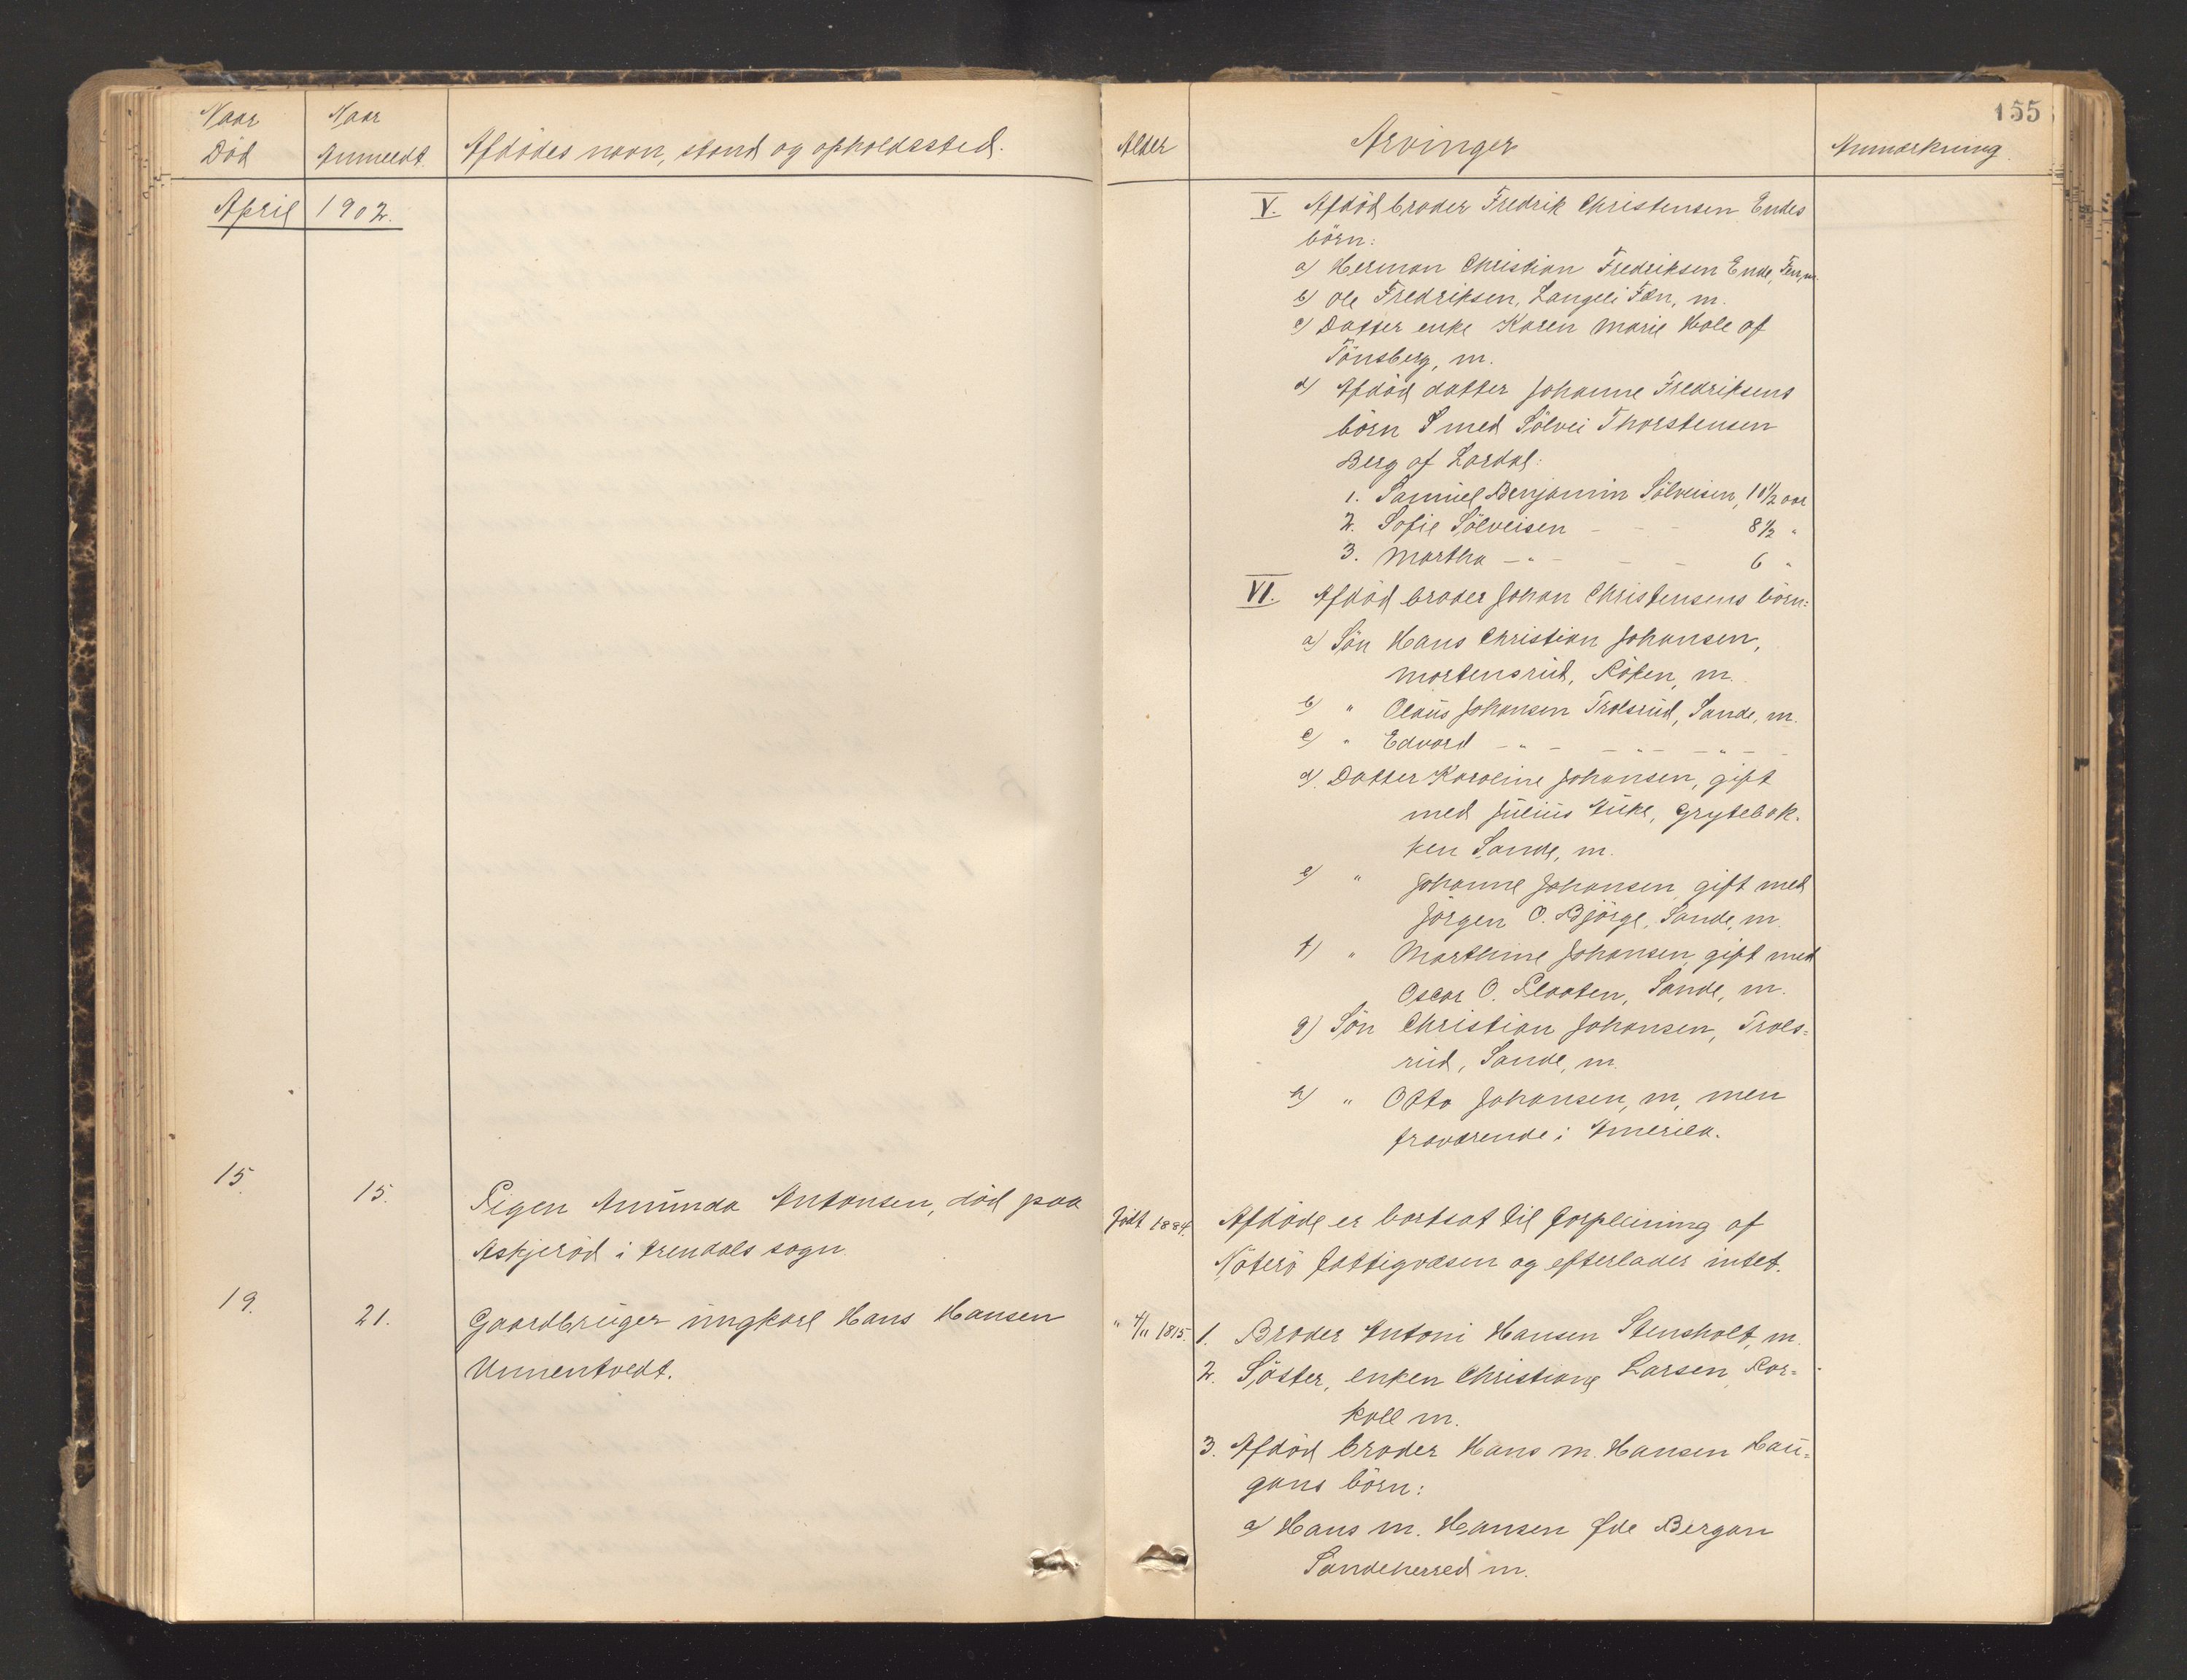 155
Naar Død
Naar Anmeldt.
Afdödes navn, stand og opholdssted.
Alder
Arvinger
Anmærkning.
April 1902.
V. Afdöd broder Fredrik Christensen Endes
börn:
a) Herman Christian Fredriksen Ende, Fen, m.
b) Ole Fredriksen, Langeli Fen, m.
c) Datter enke Karen Marie Hole af
Tönsberg, m.
d) Afdöd datter Johanne Fredriksens
börn med Sölvei Thorstensen
Berg af Lardal:
1. Samuel Benjamin Sölveisen, 10½ aar
2. Sofie Sölveisen - - - 8½ "
3. Martha - " - - - 6 "
VI. Afdöd broder Johan Christensens börn:
a) Sön Hans Christian Johansen,
Mortensrud, Röken, m.
b) " Olaus Johansen Trolsrud, Sande, m.
c) " Edvard - " - - " - - " - -
d) Datter Karoline Johansen, gift
med Julius Auke, Grytebæk-
ken Sande, m.
e) " Johanne Johansen gift med
Jörgen O. Bjørge, Sande, m.
f) " Marthine Johansen, gift med
Oscar O. Plaaten, Sande, m.
g) Sön Christian Johansen, Trols=
rud, Sande, m.
h) " Otto Johansen, m, men
fraværende i Amerika.
15. 15. Pigen Amunda Antonsen, død paa
Askjeröd i Arendals sogn.
født 1884.
Afdöde er bortsat til forpleining af
Nöterö fattigvæsen og efterlader intet.
19. 21. Gaardbruger ungkarl Hans Hansen
Unnentvedt.
" 4/11 1815.
1. Broder Antoni Hansen Stensholt, m.
2. Söster, enken Christiane Larsen, Ror=
koll m.
3. Afdöd broder Hans M. Hansen Hau=
gans börn:
a) Hans M. Hansen fde Bergan
Sandeherred m.